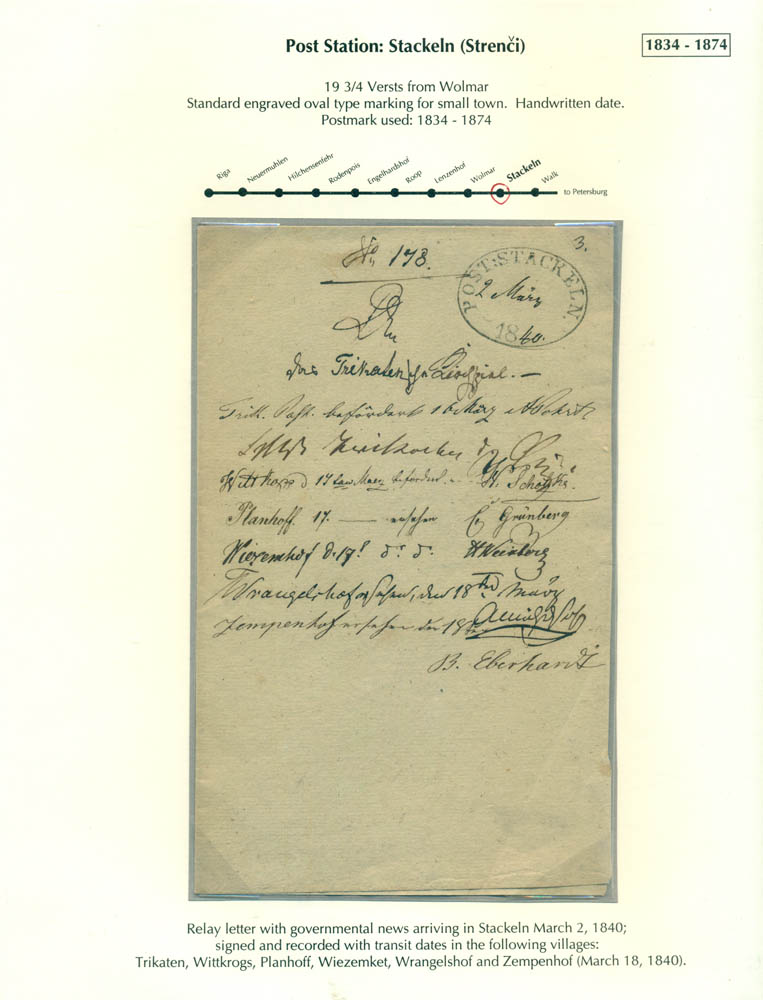 Post Station: Stackeln (Strenči)
1834 - 1874
19 3/4 Versts from Wolmar
Standard engraved oval type marking for small town. Handwritten date.
Postmark used: 1834 - 1874
Riga
Neuermuhlen
Hilchensenfehr
Rodenpois
Engelhardshof
Roop
Lenzenhof
Wolmar
Stackeln
Walk
to Petersburg
3.
No 178.
POST: STACKELN.
2 März
1840.
An
das Trikatensche Kirchspiel. —
Trik. Past. befördert 16 März
Wittkopp d 17 ten Maerz befördert
Planhoff. 17. — ersehen Grünberg
Wiezemhof d. 17t. d: d: HWeinberg
Wrangelshof ersehen, den 18ten März
Zempenhof ersehen den 18
B. Eberhardt
Relay letter with governmental news arriving in Stackeln March 2, 1840;
signed and recorded with transit dates in the following villages:
Trikaten, Wittkrogs, Planhoff, Wiezemket, Wrangelshof and Zempenhof (March 18, 1840).